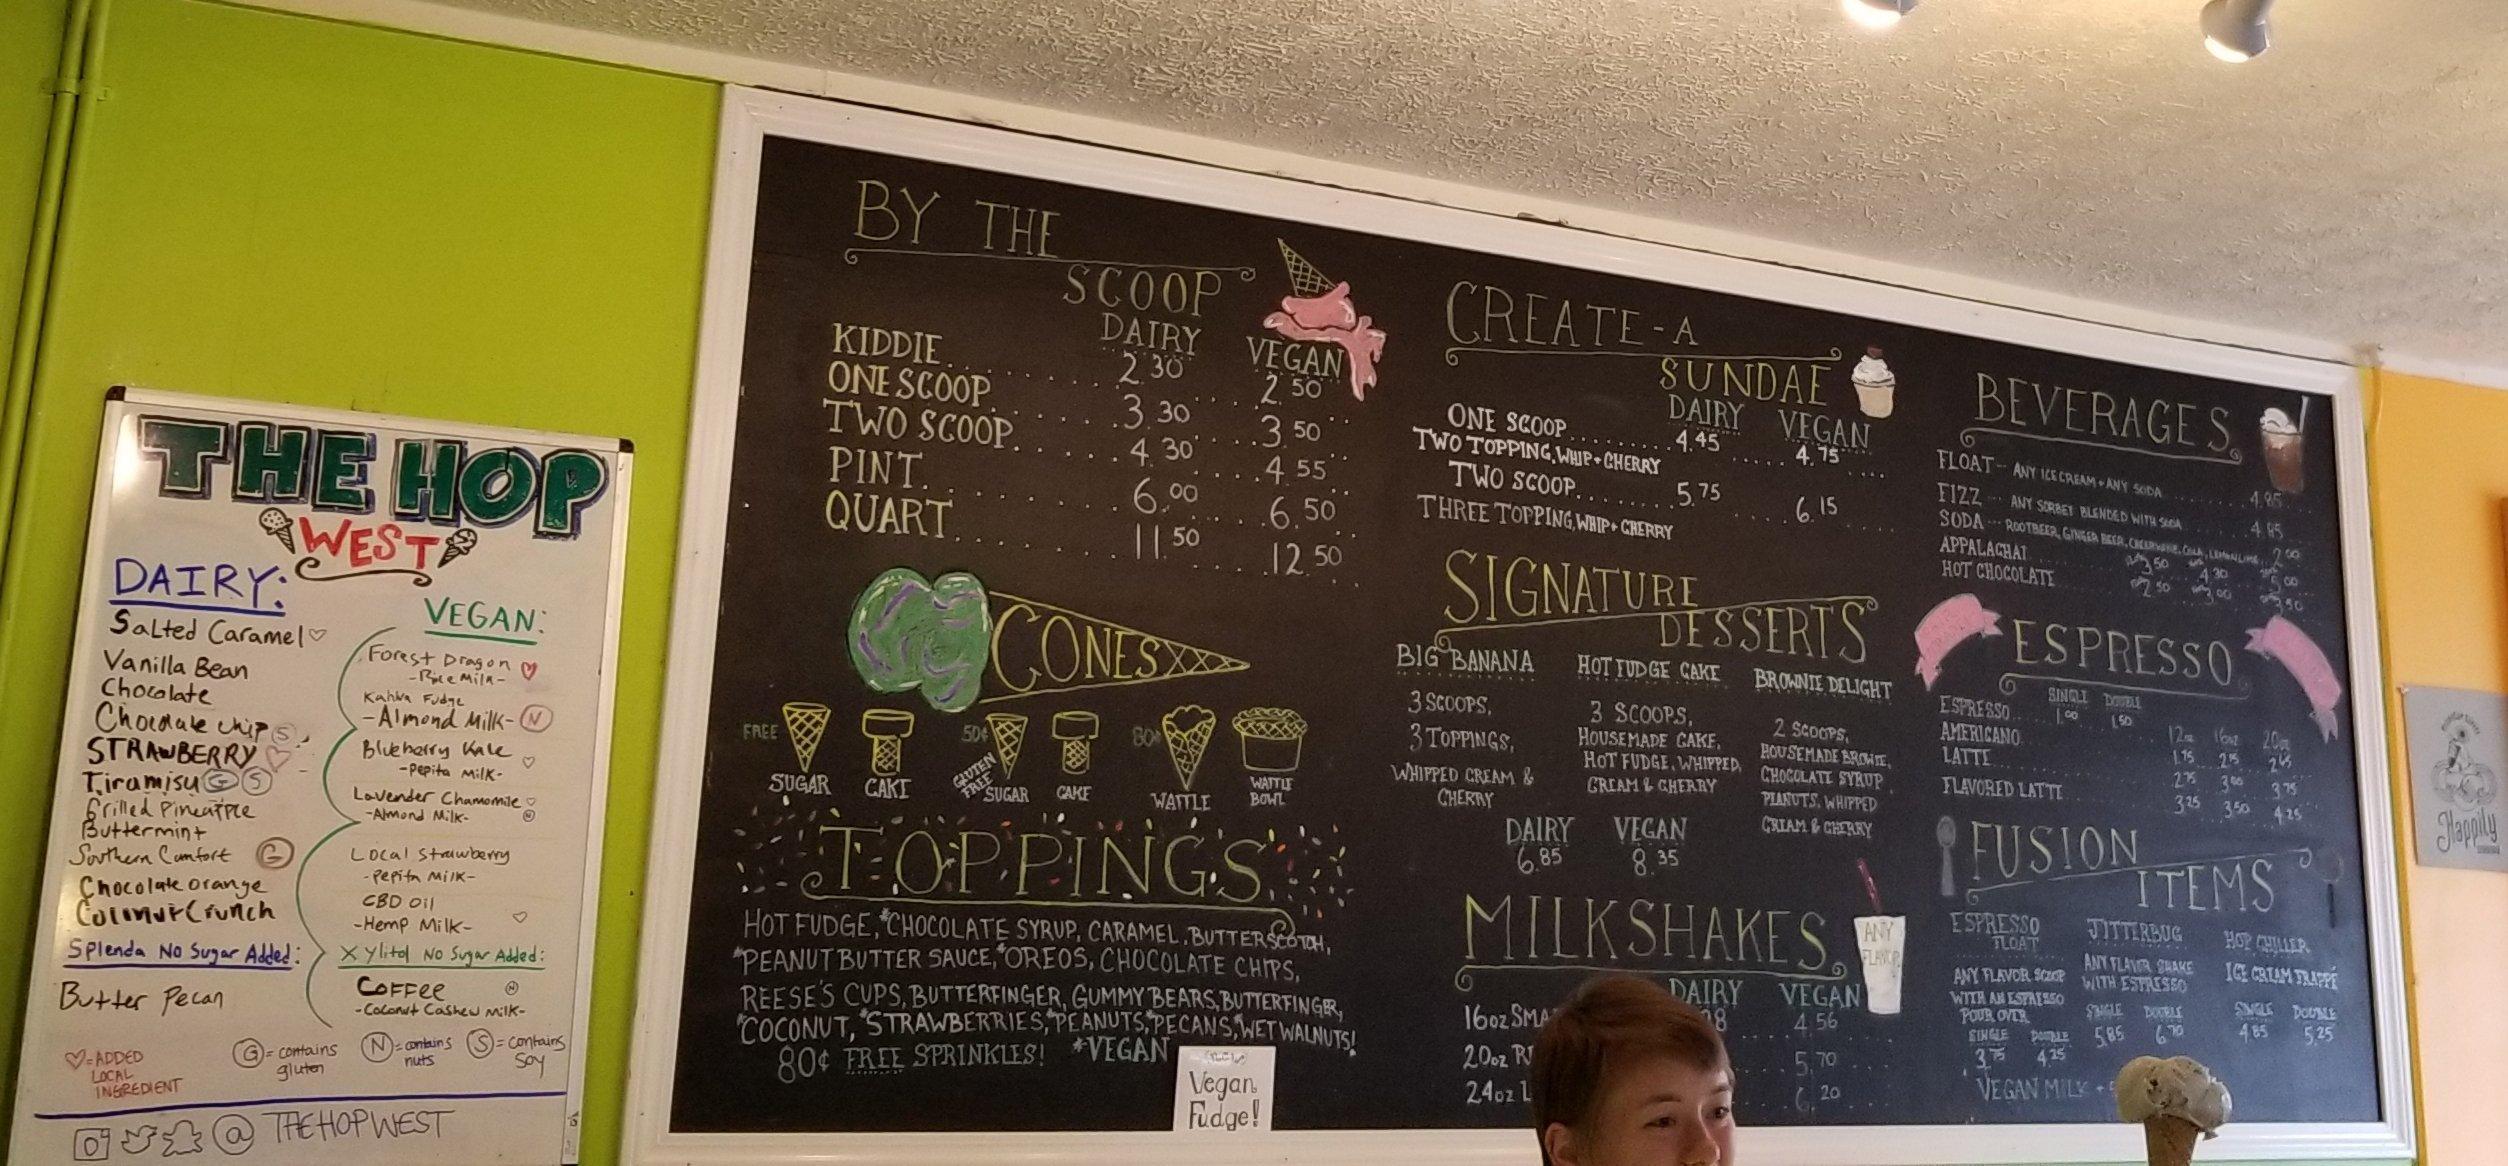 THE HOP
WEST
DAIRY:
Salted Caramel
Vanilla Bean
Chocolate
Chocolate Chip S
STRAWBERRY
Tiramisu G S
Grilled Pineapple
Buttermint
Southern Comfort G
Chocolate Orange
Coconut Crunch
Splenda No Sugar Added:
Butter Pecan
VEGAN:
Forest Dragon
-Rice Milk-
Kahlua Fudge
-Almond Milk- N
Blueberry Kale
-Pepita Milk-
Lavender Chamomile
-Almond Milk- N
Local Strawberry
-Pepita Milk-
CBD Oil
-Hemp Milk-
Xylitol No Sugar Added:
Coffee N
-Coconut Cashew Milk-
= ADDED
LOCAL
INGREDIENT
G = contains
gluten
N = contains
nuts
S = contains
soy
@ THEHOPWEST
BY THE
SCOOP
DAIRY VEGAN
KIDDIE 2.30 2.50
ONE SCOOP 3.30 3.50
TWO SCOOP 4.30 4.55
PINT 6.00 6.50
QUART 11.50 12.50
CONES
FREE 50¢ 80¢
SUGAR CAKE GLUTEN FREE SUGAR CAKE WAFFLE WAFFLE BOWL
TOPPINGS
HOT FUDGE, *CHOCOLATE SYRUP, CARAMEL, BUTTERSCOTCH,
*PEANUT BUTTER SAUCE, *OREOS, CHOCOLATE CHIPS,
REESE'S CUPS, BUTTERFINGER, GUMMY BEARS, BUTTERFINGER,
*COCONUT, *STRAWBERRIES, *PEANUTS, *PECANS, *WET WALNUTS!
80¢ FREE SPRINKLES! *VEGAN
Vegan
Fudge!
CREATE-A
SUNDAE
DAIRY VEGAN
ONE SCOOP 4.45 4.75
TWO TOPPING, WHIP + CHERRY
TWO SCOOP 5.75 6.15
THREE TOPPING, WHIP + CHERRY
SIGNATURE
DESSERTS
BIG BANANA
3 SCOOPS,
3 TOPPINGS,
WHIPPED CREAM &
CHERRY
HOT FUDGE CAKE
3 SCOOPS,
HOUSEMADE CAKE,
HOT FUDGE, WHIPPED
CREAM & CHERRY
BROWNIE DELIGHT
2 SCOOPS,
HOUSEMADE BROWNIE,
CHOCOLATE SYRUP,
PEANUTS, WHIPPED
CREAM & CHERRY
DAIRY VEGAN
6.85 8.35
MILKSHAKES
ANY
FLAVOR
DAIRY VEGAN
16oz 4.56
20oz 5.70
24oz 6.20
BEVERAGES
FLOAT -- ANY ICE CREAM + ANY SODA 4.85
FIZZ --- ANY SORBET BLENDED WITH SODA 4.85
SODA --- ROOTBEER, GINGER BEER, CHEERWINE, COLA, LEMON LIME 2.00
APPALACHAI 3.50 4.30 5.00
HOT CHOCOLATE 2.50 3.00 3.50
ESPRESSO
SINGLE DOUBLE
ESPRESSO 1.00 1.50
12oz 16oz 20oz
AMERICANO 1.75 2.15 2.45
LATTE 2.75 3.00 3.75
FLAVORED LATTE 3.25 3.50 4.25
FUSION
ITEMS
ESPRESSO
FLOAT
ANY FLAVOR SCOOP
WITH AN ESPRESSO
POUR OVER
SINGLE DOUBLE
3.75 4.25
JITTERBUG
ANY FLAVOR SHAKE
WITH ESPRESSO
SINGLE DOUBLE
5.85 6.70
HOP CHILLER
ICE CREAM FRAPPÉ
SINGLE DOUBLE
4.85 5.25
VEGAN MILK +
Happily